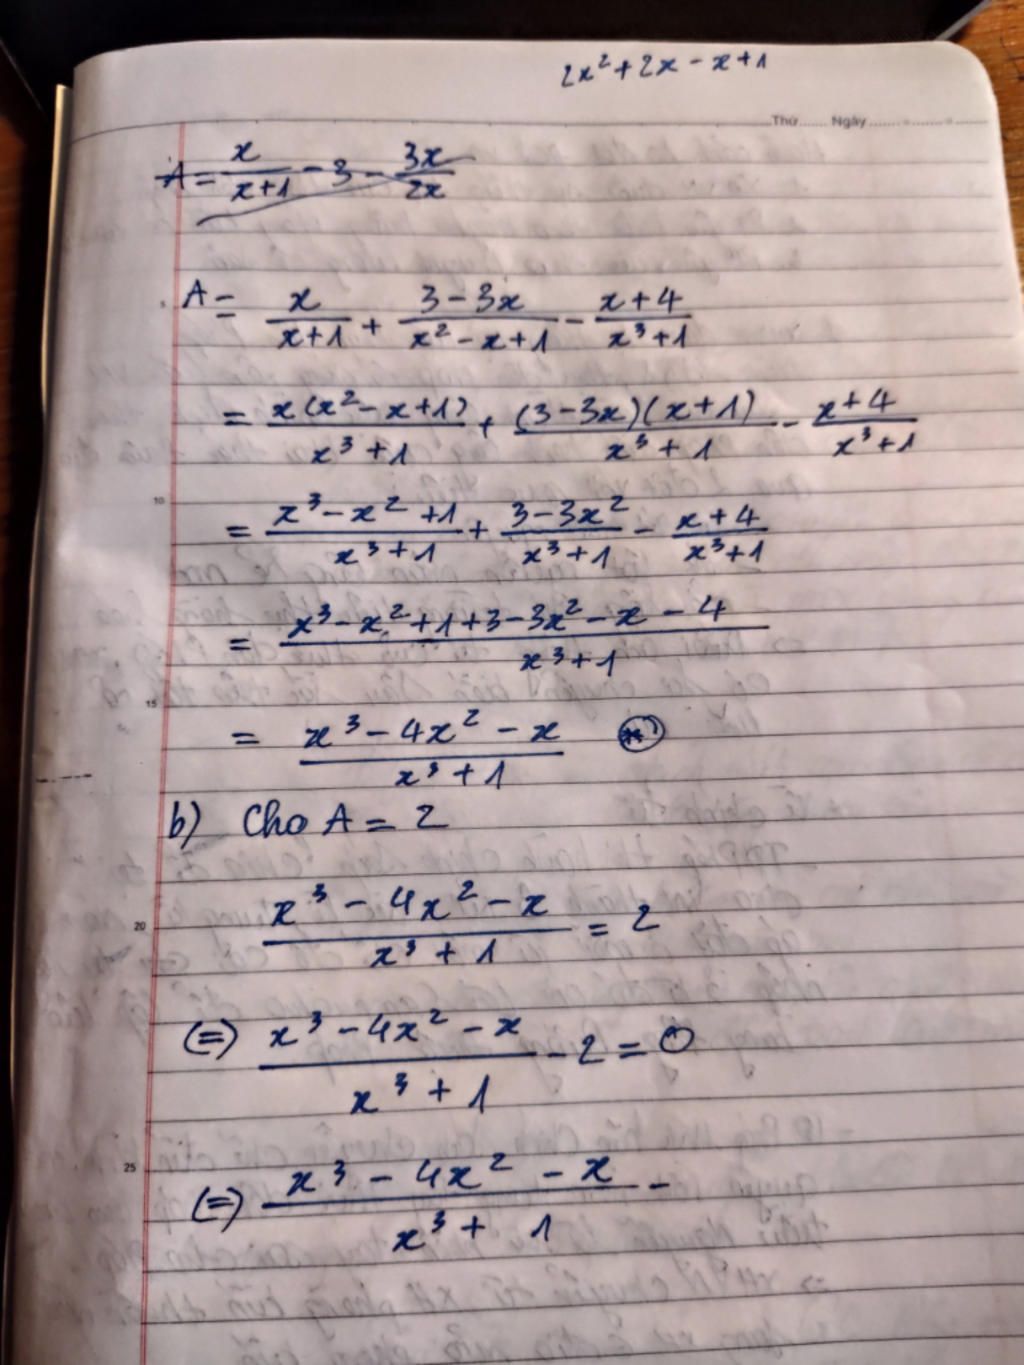 2x² + 2x - x + 1
Thứ ...... Ngày ...............
A = x/(x+1) - 3 - 3x/2x
5
A = x/(x+1) + (3 - 3x)/(x² - x + 1) - (x + 4)/(x³ + 1)
= x(x² - x + 1)/(x³ + 1) + (3 - 3x)(x + 1)/(x³ + 1) - (x + 4)/(x³ + 1)
10
= (x³ - x² + 1)/(x³ + 1) + (3 - 3x²)/(x³ + 1) - (x + 4)/(x³ + 1)
= (x³ - x² + 1 + 3 - 3x² - x - 4)/(x³ + 1)
15
= (x³ - 4x² - x)/(x³ + 1) (*)
b) Cho A = 2
20
(x³ - 4x² - x)/(x³ + 1) = 2
(=) (x³ - 4x² - x)/(x³ + 1) - 2 = 0
25
(=) (x³ - 4x² - x)/(x³ + 1) -